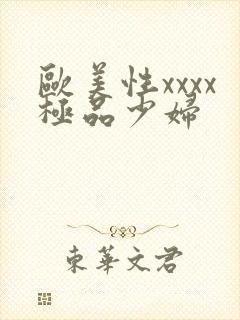 歐美性xxxx
極品少婦
東華文君